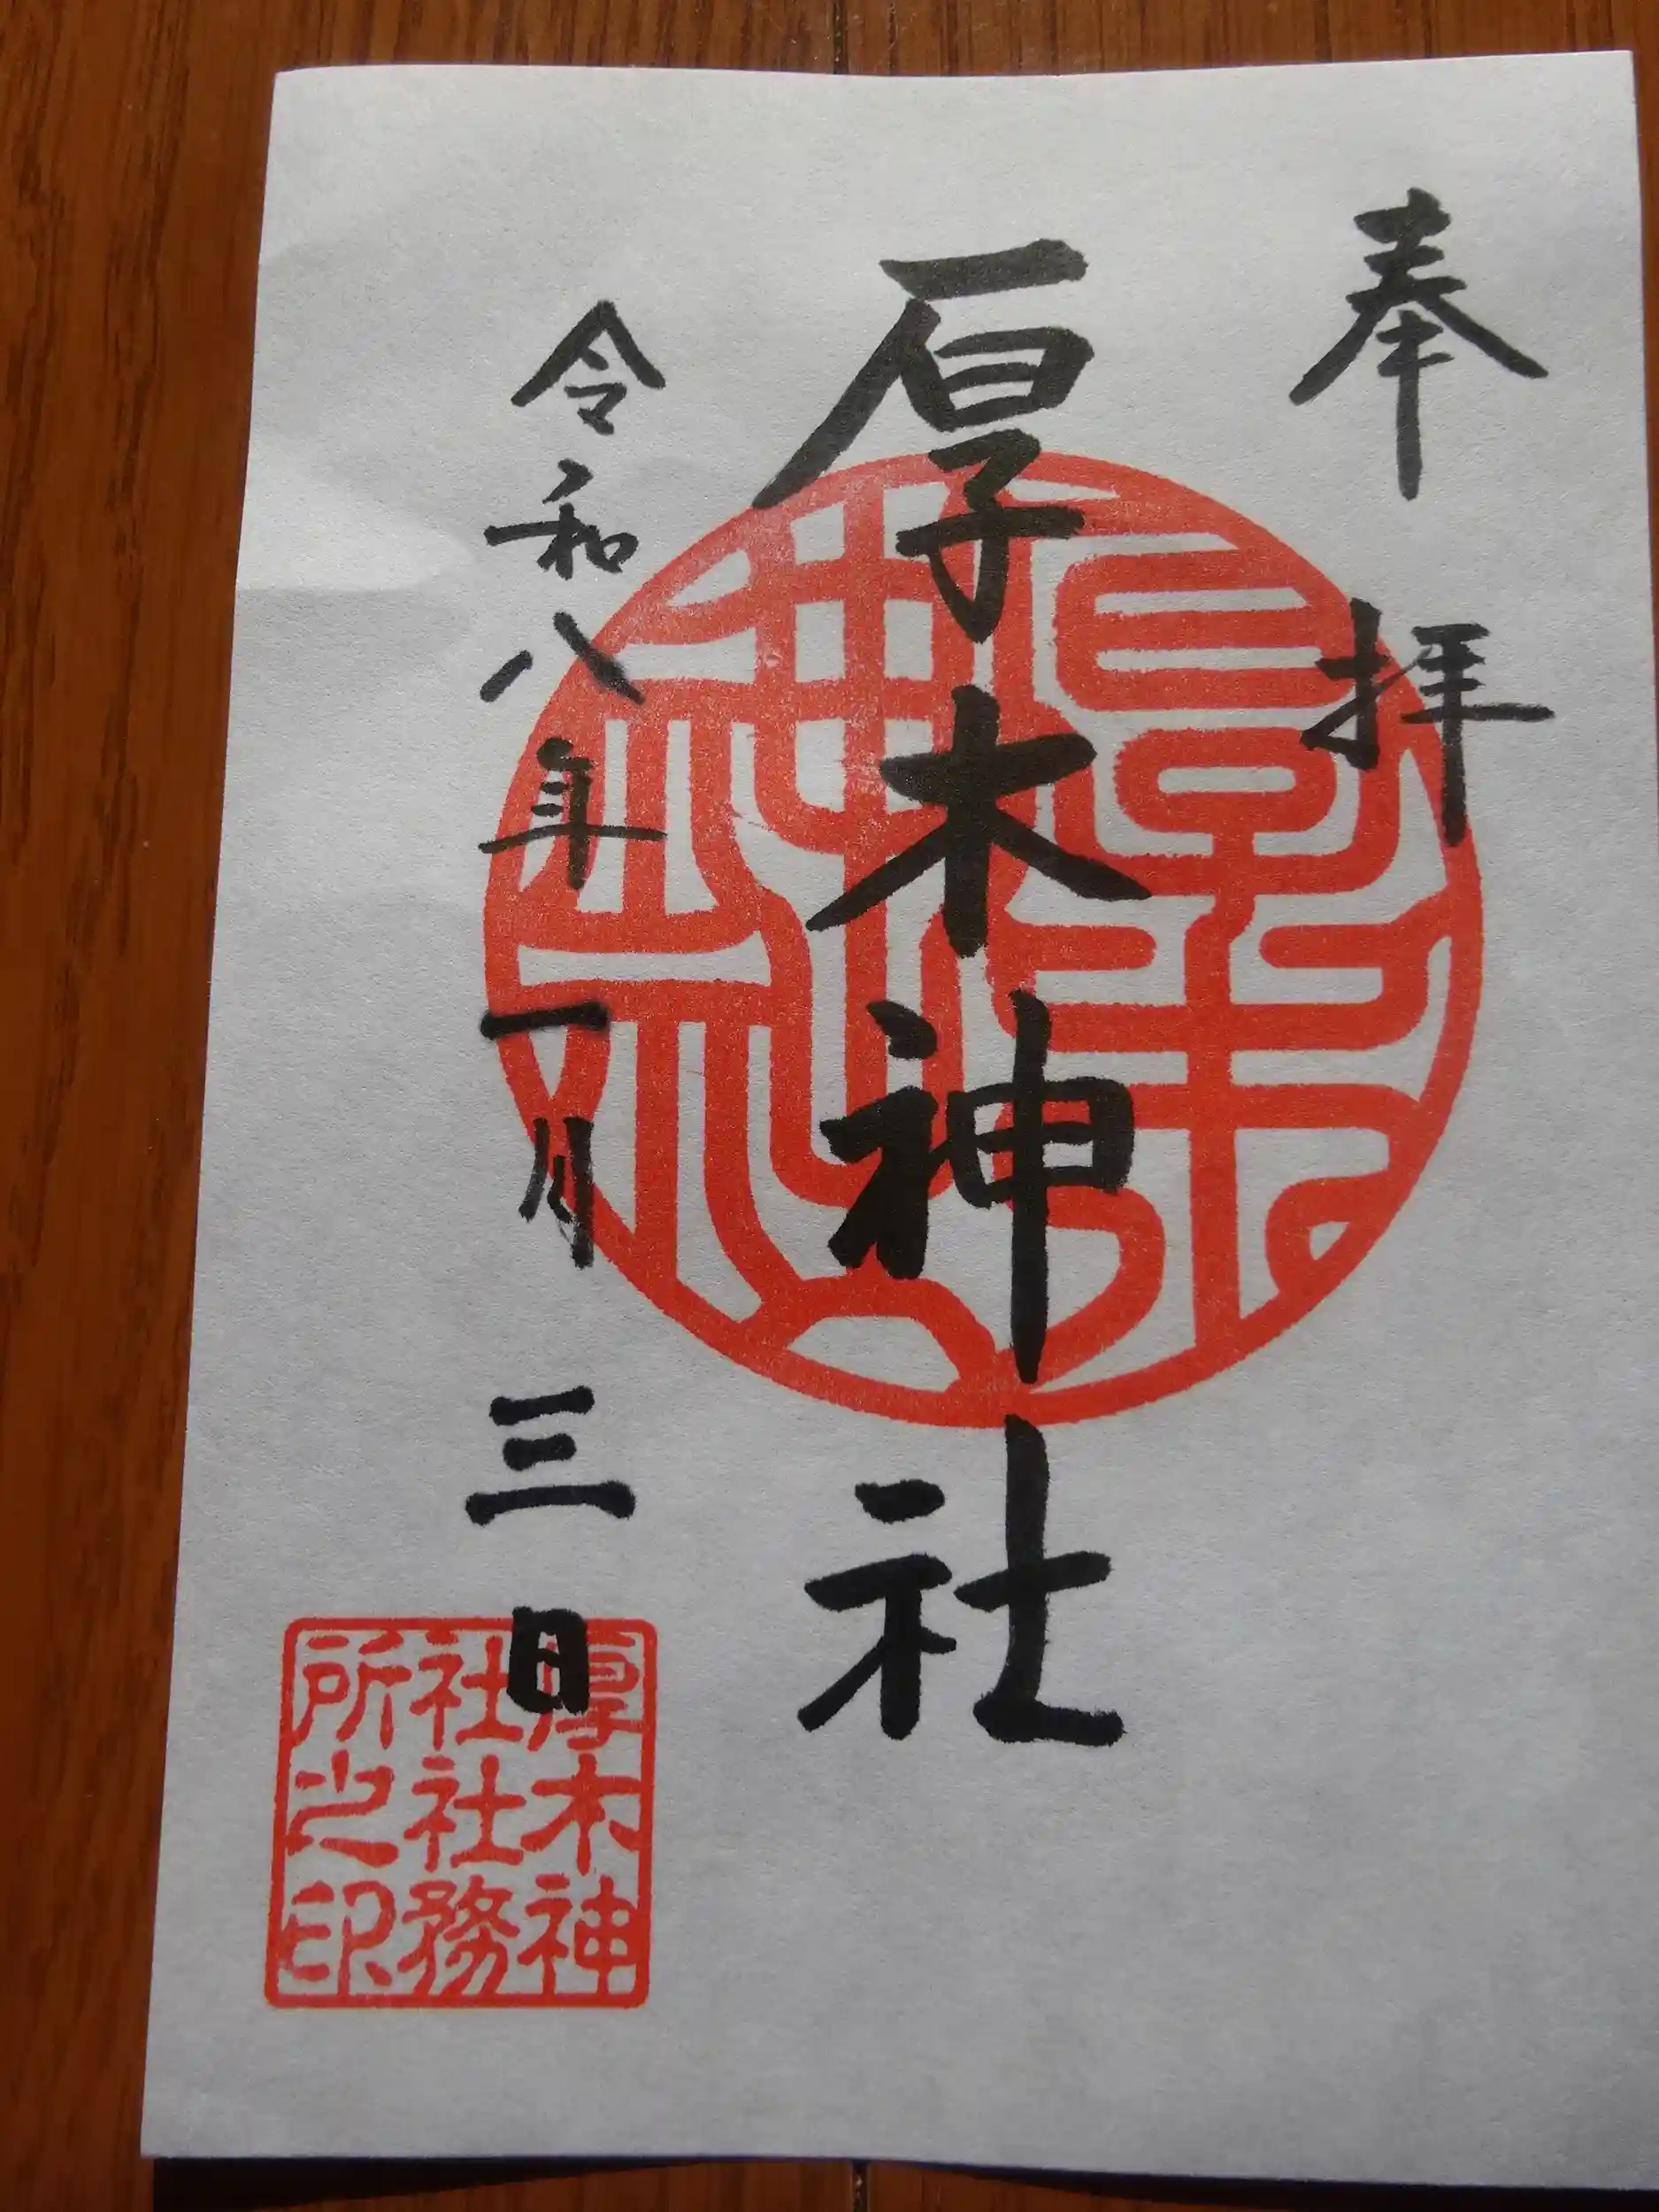 奉拝
厚木神社
令和八年一月三日
厚木神
社社務
所之印
厚木
神社